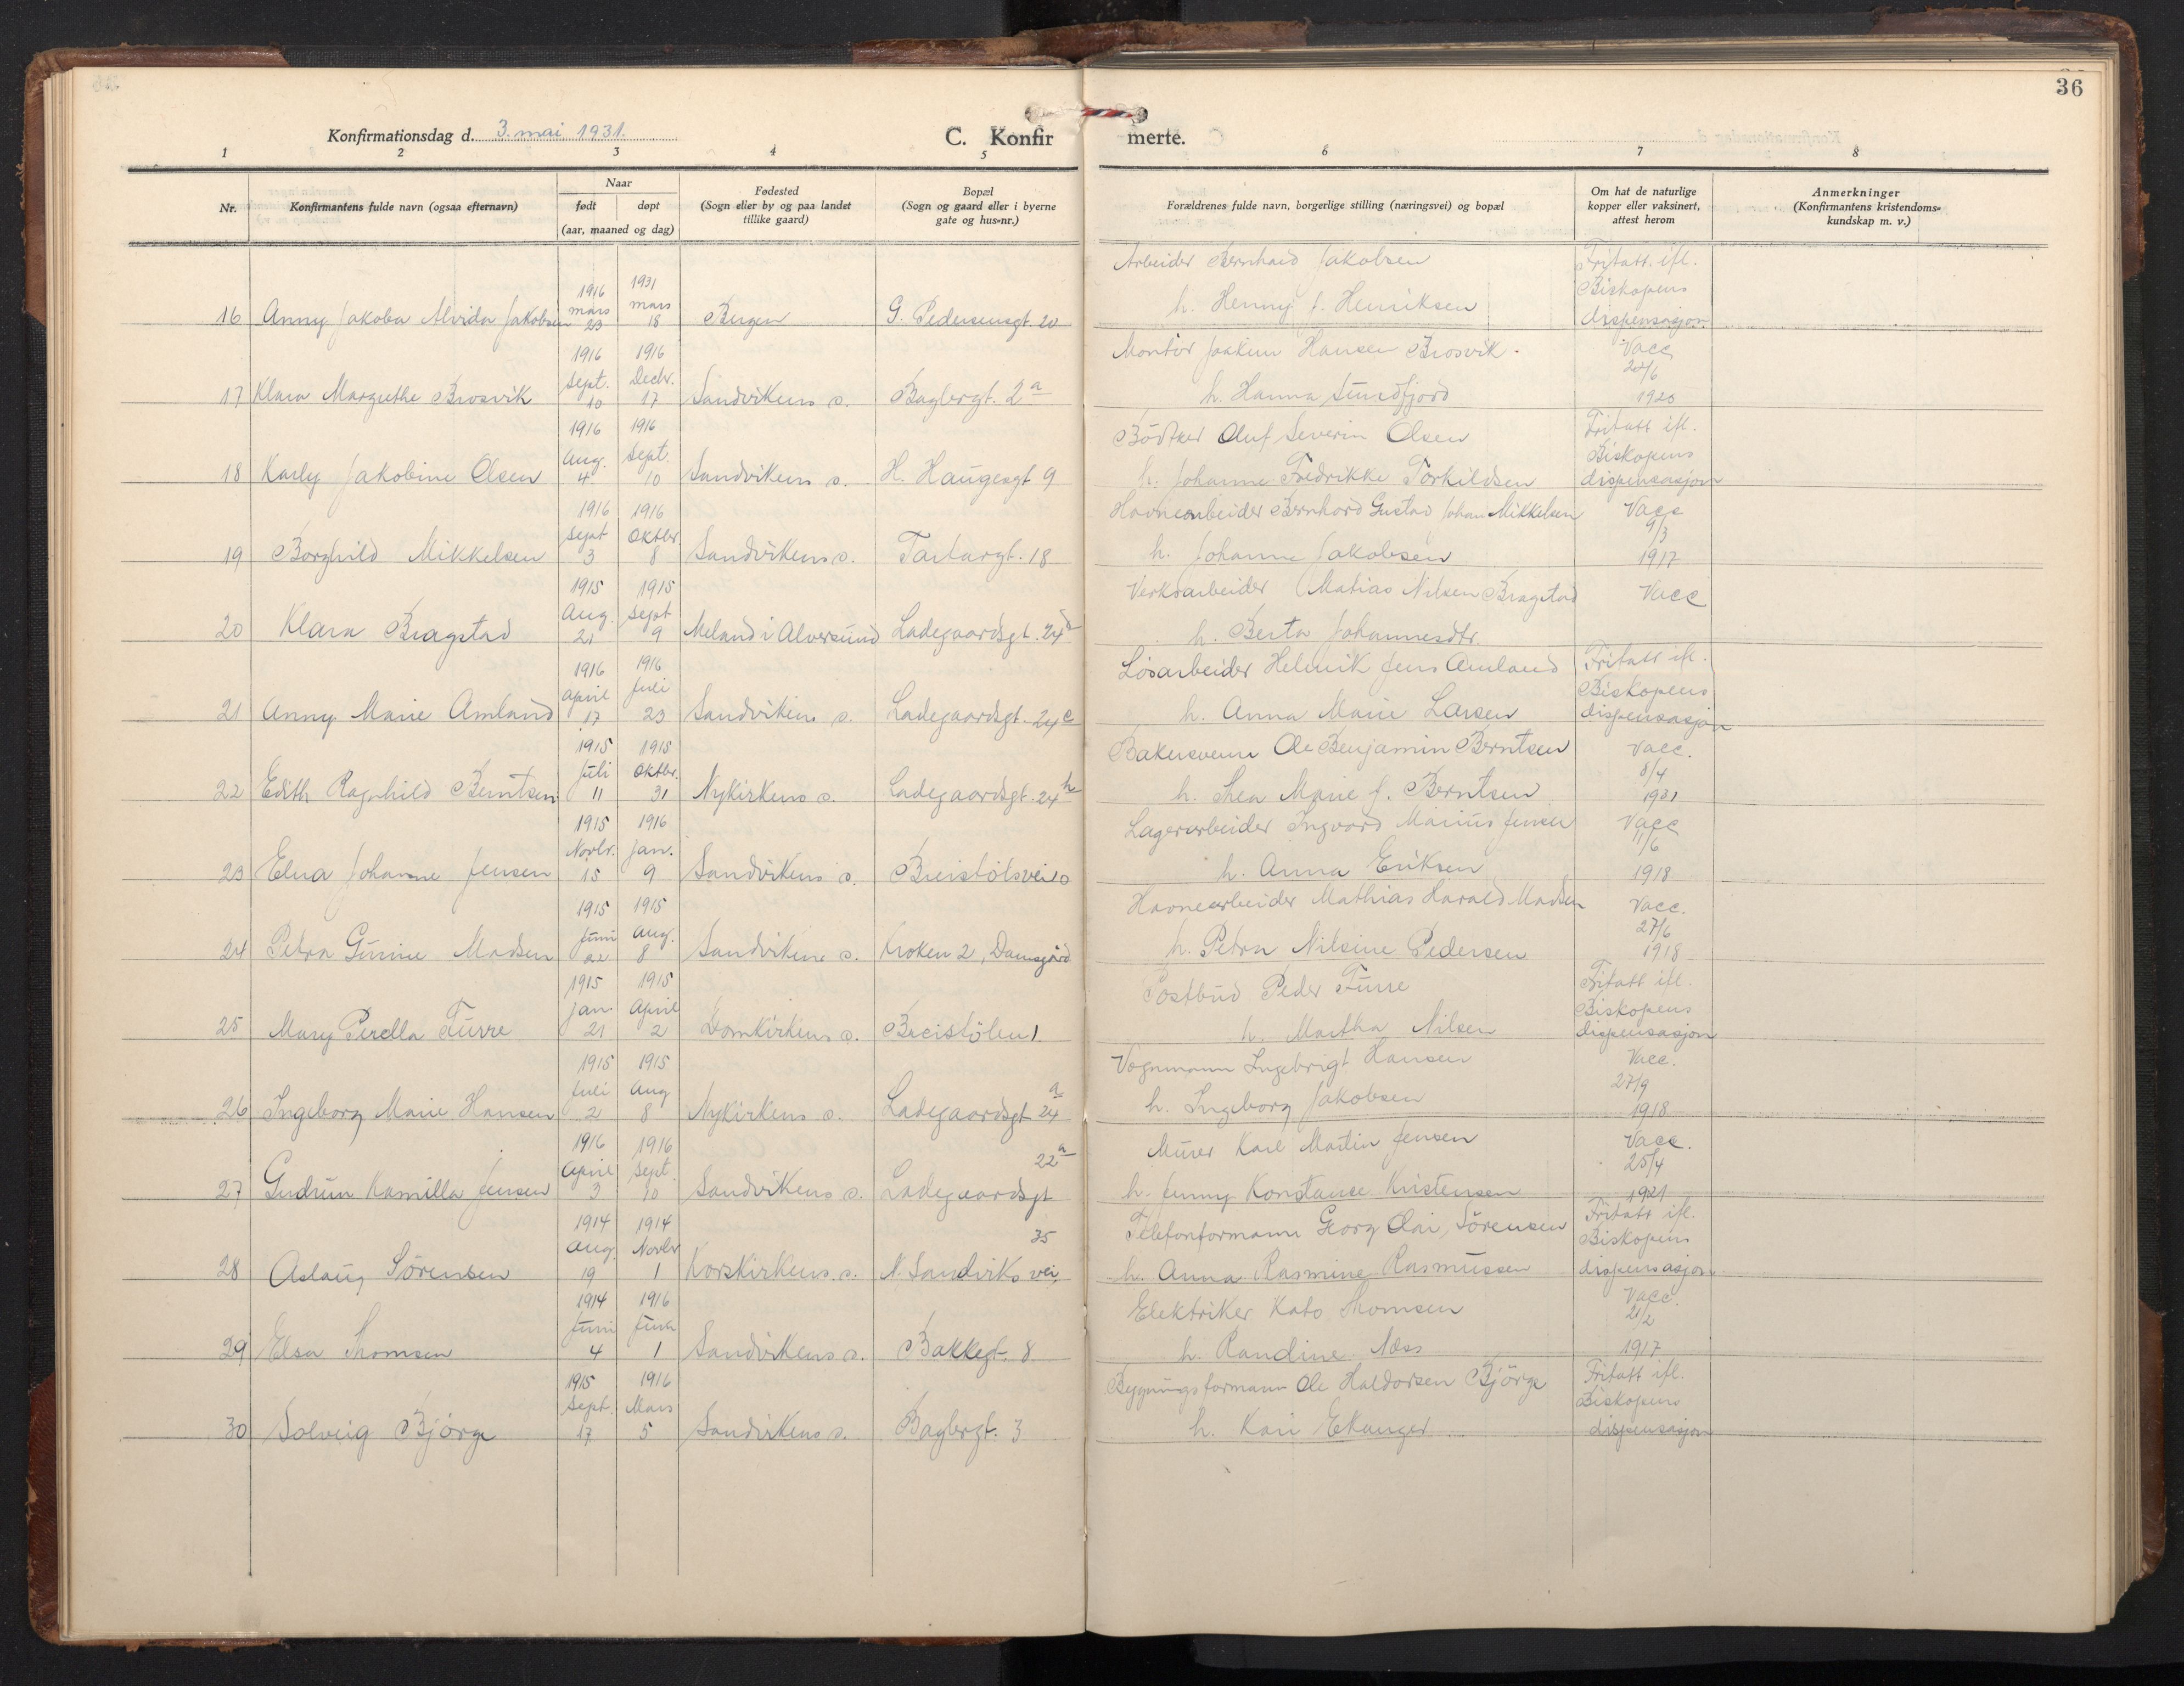 36
Konfirmationsdag d. 3. mai 1931.
C. Konfirmerte.
1 2 3 4 5 6 7 8
Nr.
Konfirmantens fulde navn (ogsaa efternavn)
Naar
født døpt
(aar, maaned og dag)
Fødested
(Sogn eller by og paa landet
tillike gaard)
Bopæl
(Sogn og gaard eller i byerne
gate og hus-nr.)
Forældrenes fulde navn, borgerlige stilling (næringsvei) og bopæl
Om hat de naturlige
kopper eller vaksinert,
attest herom
Anmerkninger
(Konfirmantens kristendoms-
kundskap m. v.)
Arbeider Bernhard Jakobsen Fritatt ifl.
1916 1931 Biskopens
mars mars h. Henny f. Henriksen
16 Anny Jakoba Alvida Jakobsen 23 18 Bergen G. Pedersensgt. 20 dispensasjon
1916 1916 Montør Joakim Hansen Brosvik. Vacc
Sept. Decbr.
17 Klara Margrethe Brosvik 10 17 Sandvikens s. Baglergt. 2a h. Hanna Sundfjord 1920
1916 1916 Bödker Oluf Severin Olsen Fritatt ifl.
Aug. Sept. Biskopens
18 Karly Jakobine Olsen 4 10 Sandvikens s. H. Haugesgt 9 h. Johanne Fredrikke Torkildsen dispensasjon
1916 1916 Havnearbeider Bernhard Gustav Johan Mikkelsen Vacc
Sept Oktbr 9/3
19 Borghild Mikkelsen 3 8 Sandvikens s. Tartargt. 18 h. Johanne Jakobsen 1917
1915 1915 Verksarbeider Matias Nilsen Bragstad Vacc
Aug. Sept
20 Klara Bragstad 21 9 Meland i Alversund Ladegaardsgt. 24 h. Berta Johannesdtr.
1916 1916 Løsarbeider Helmik Jens Amland Fritatt ifl.
April Juli Biskopens
21 Anny Marie Amland 17 23 Sandvikens s. Ladegaardsgt. 24c h. Anna Marie Larsen dispensasjon
1915 1915 Bakersvenn Ole Benjamin Berntsen Vacc.
Juli Oktbr. 8/4
22 Edith Ragnhild Berntsen 11 31 Nykirkens s. Ladegaardsgt. 24 h. Thea Marie f. Berntsen 1931
1915 1916 Lagerarbeider Ingvard Marius Jensen Vacc
Novbr. Jan. 11/6
23 Elna Johanne Jensen 15 9 Sandvikens s. Breistølsvei 10 h. Anna Eriksen 1918
1915 1915 Havnearbeider Mathias Harald Madsen Vacc.
Juni Aug. 27/6
24 Petra Gunine Madsen 22 8 Sandvikens s. Kroken 2, Damsgård h. Petra Nilsine Pedersen 1918
1915 1915 Postbud Peder Furre Fritatt ifl.
Jan. April Biskopens
25 Mary Perella Furre 21 2 Domkirkens s. Breistölen 1. h. Martha Nilsen dispensasjon
1915 1915 Vognmann Ingebrigt Hansen Vacc.
Juli Aug 27/9
26 Ingeborg Marie Hansen 2 8 Nykirkens s. Ladegaardsgt 24a h. Ingeborg Jakobsen 1918
1916 1916 Murer Karl Martin Jensen Vacc.
April Sept. 22a 25/4
27 Gudrun Kamilla Jensen 3 10 Sandvikens s. Ladegaardsgt h. Jenny Konstanse Kristensen 1921
1914 1914 Telefonformann Georg Olai Sörensen Fritatt ifl.
Aug. Novbr 35 Biskopens
28 Aslaug Sörensen 19 1 Korskirkens s. N. Sandviksvei, h. Anna Rasmine Rasmussen dispensasjon
1914 1916 Elektriker Kato Thomsen Vacc.
Juni 21/2
29 Elsa Thomsen 4 1 Sandvikens s. Bakkegt. 8 h. Randine Næss 1917
1915 1916 Bygningsformann Ole Haldorsen Björge Fritatt ifl.
Sept. Mars Biskopens
30 Solveig Björge 17 5 Sandvikens s. Baglergt. 3 h. Kari Ekanger dispensasjon